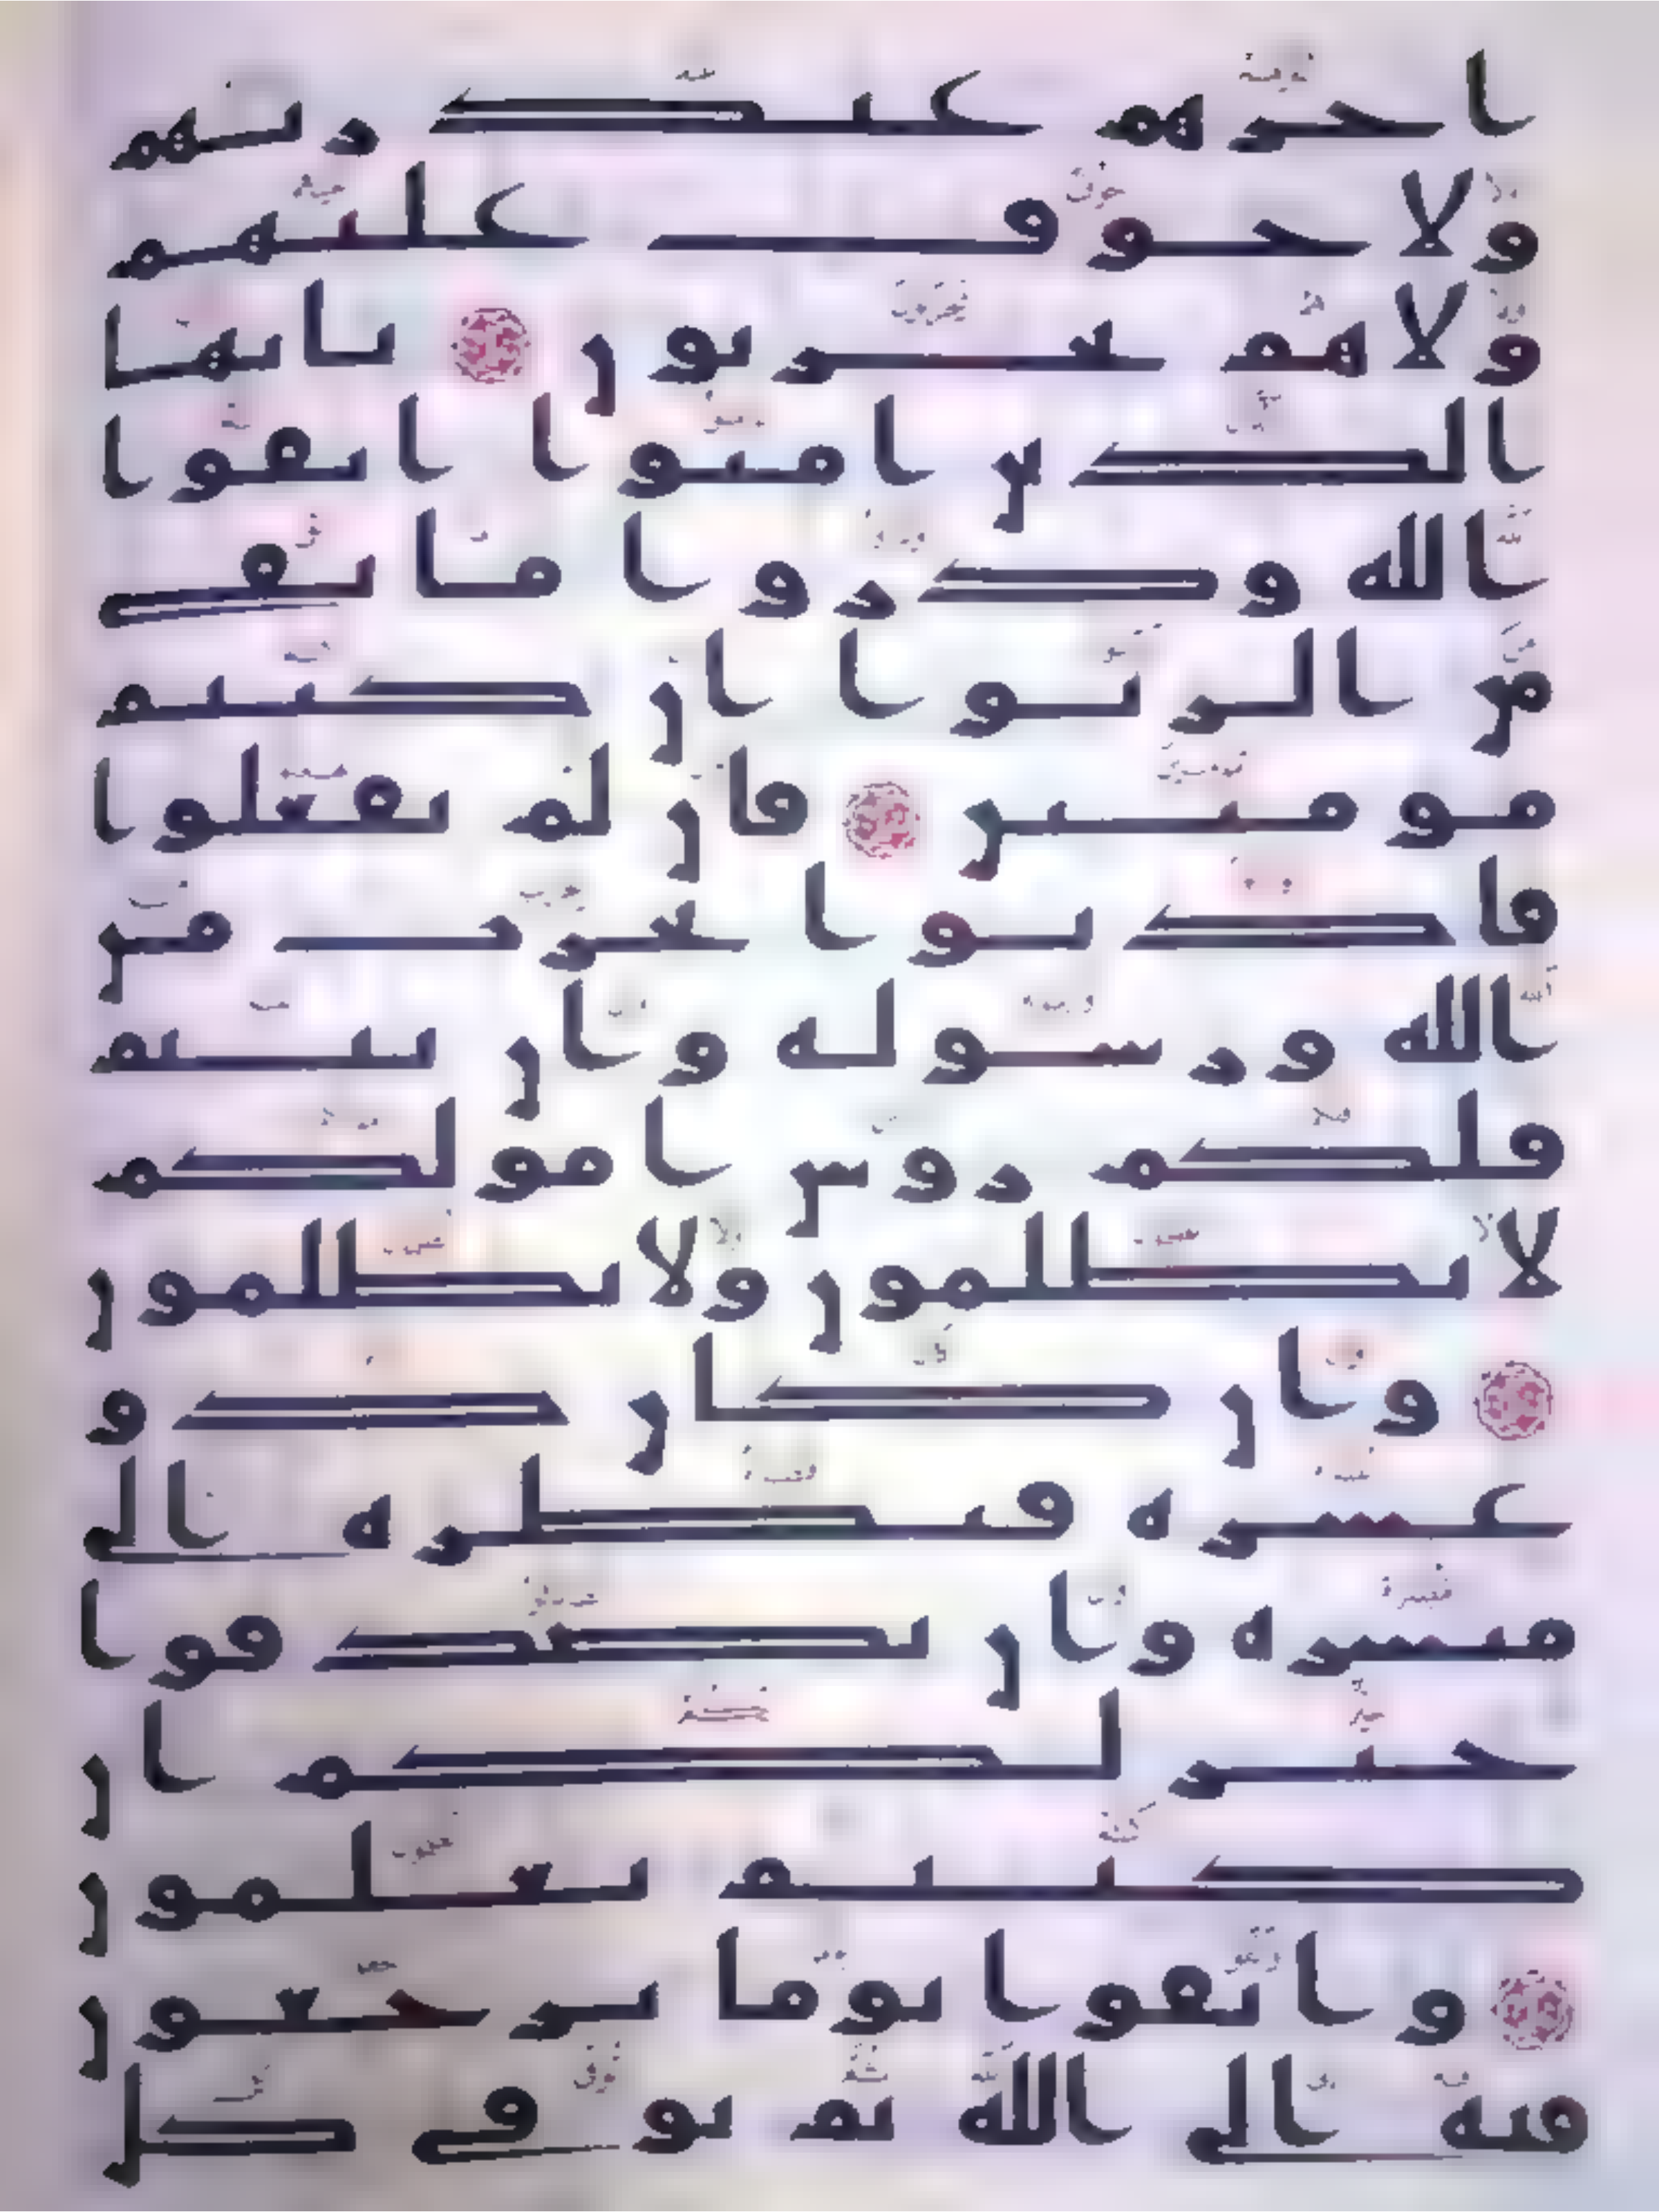 اجرهم عند ربهم
ولا خوف عليهم
ولا هم يحزنون يايها
الذين امنوا اتقوا
الله وذروا ما بقى
من الربوا ان كنتم
مومنين فان لم تفعلوا
فاذنوا بحرب من
الله ورسوله وان تبتم
فلكم روس امولكم
لا تظلمون ولا تظلمون
وان كان ذو
عسرة فنظرة الى
ميسرة وان تصدقوا
خير لكم ان
كنتم تعلمون
واتقوا يوما ترجعون
فيه الى الله ثم توفى كل